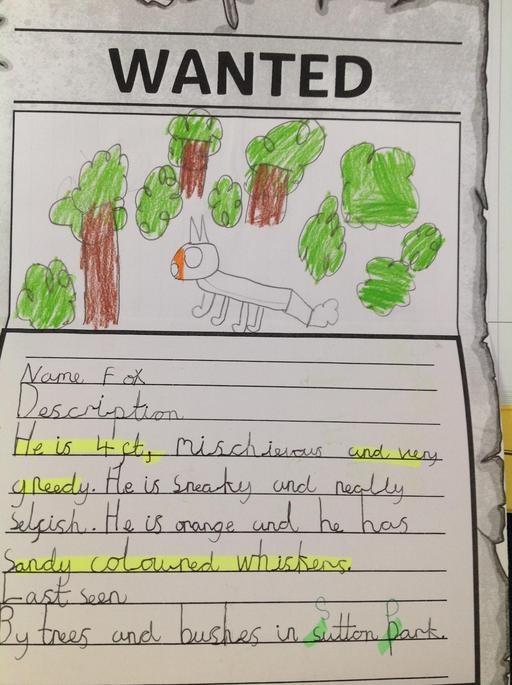 WANTED
Name Fox
Description
He is 4ft, mischievous and very
greedy. He is sneaky and really
selfish. He is orange and he has
Sandy coloured whiskers.
Last seen
S P
By trees and bushes in sutton park.